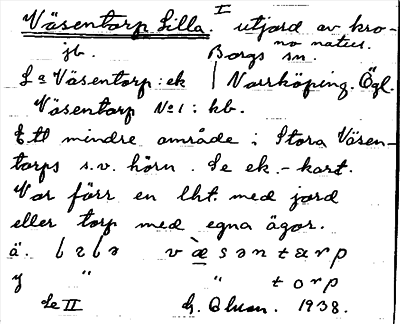 Väsentorp Lilla. I utjord av kro-
no natur.
jb. Borgs sn.
La Väsentorp: ek | Norrköping. Ögl.
Väsentorp No 1: kb.
Ett mindre område i Stora Väsen-
torps s.v. hörn. Se ek.-kart.
Var förr en lht. med jord
eller torp med egna ägor.
ä. væsəntarp
y " " torp
Se II G. Olson. 1938.